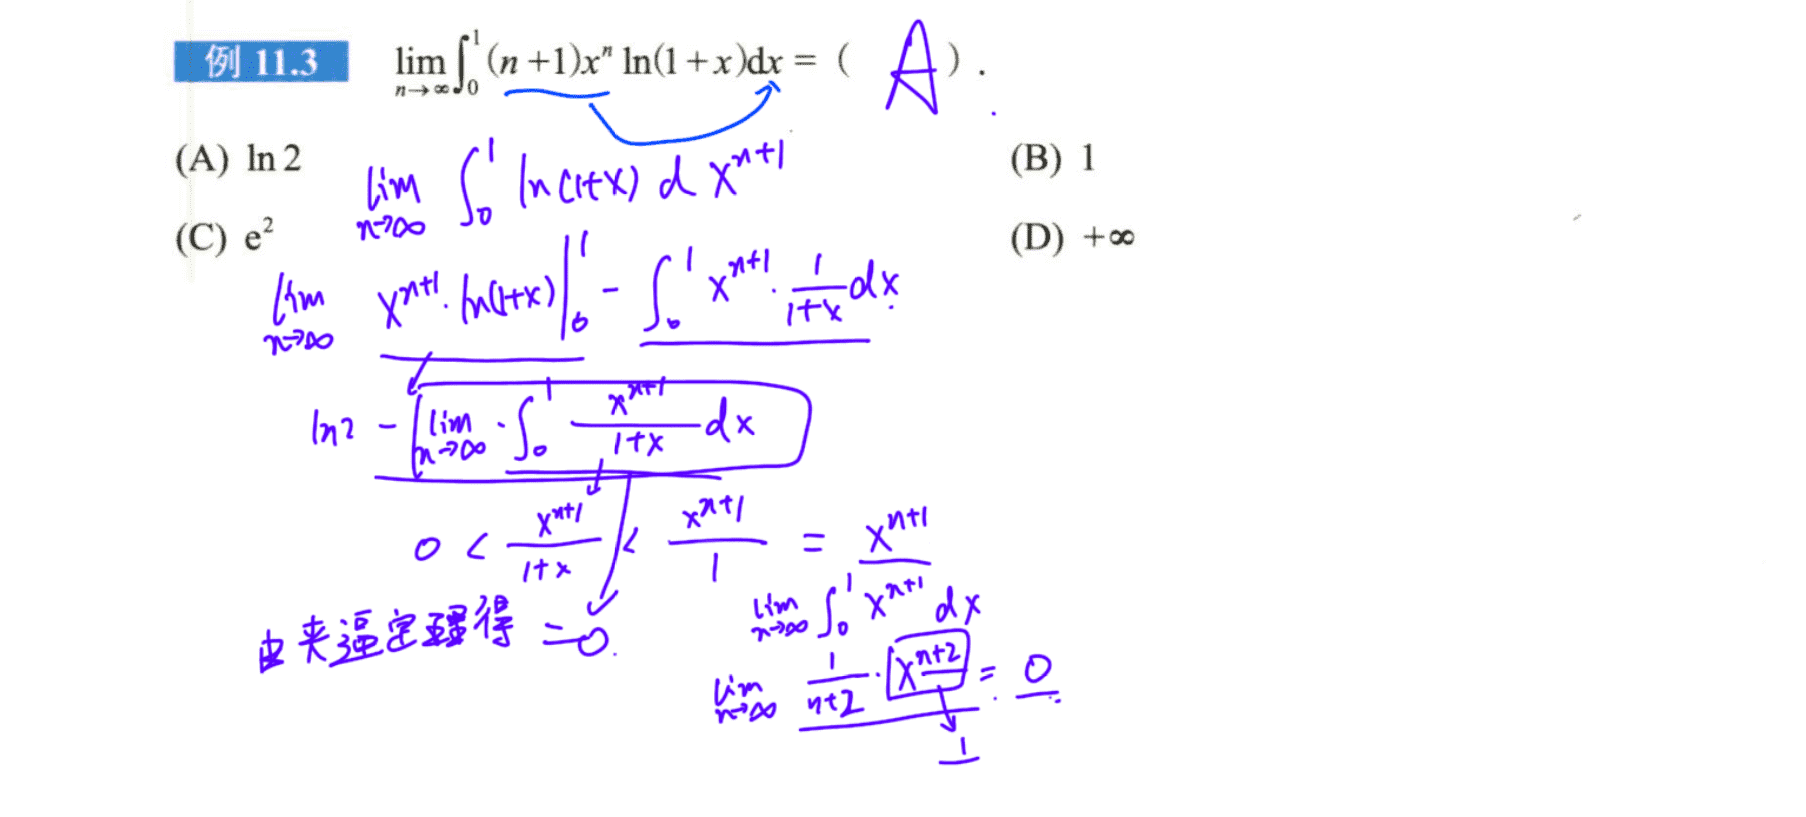 例 11.3 lim_{n→∞} ∫₀¹ (n+1)xⁿ ln(1+x)dx = ( A ).
(A) ln 2
(B) 1
lim_{n→∞} ∫₀¹ ln(1+x) d x^{n+1}
(C) e²
(D) +∞
lim_{n→∞} x^{n+1}·ln(1+x)|₀¹ - ∫₀¹ x^{n+1}·\frac{1}{1+x}dx
ln2 - lim_{n→∞}·∫₀¹ \frac{x^{n+1}}{1+x}dx
0 < \frac{x^{n+1}}{1+x} < \frac{x^{n+1}}{1} = x^{n+1}
由夹逼定理得 =0.
lim_{n→∞} ∫₀¹ x^{n+1} dx
lim_{n→∞} \frac{1}{n+2}·x^{n+2} = 0
1